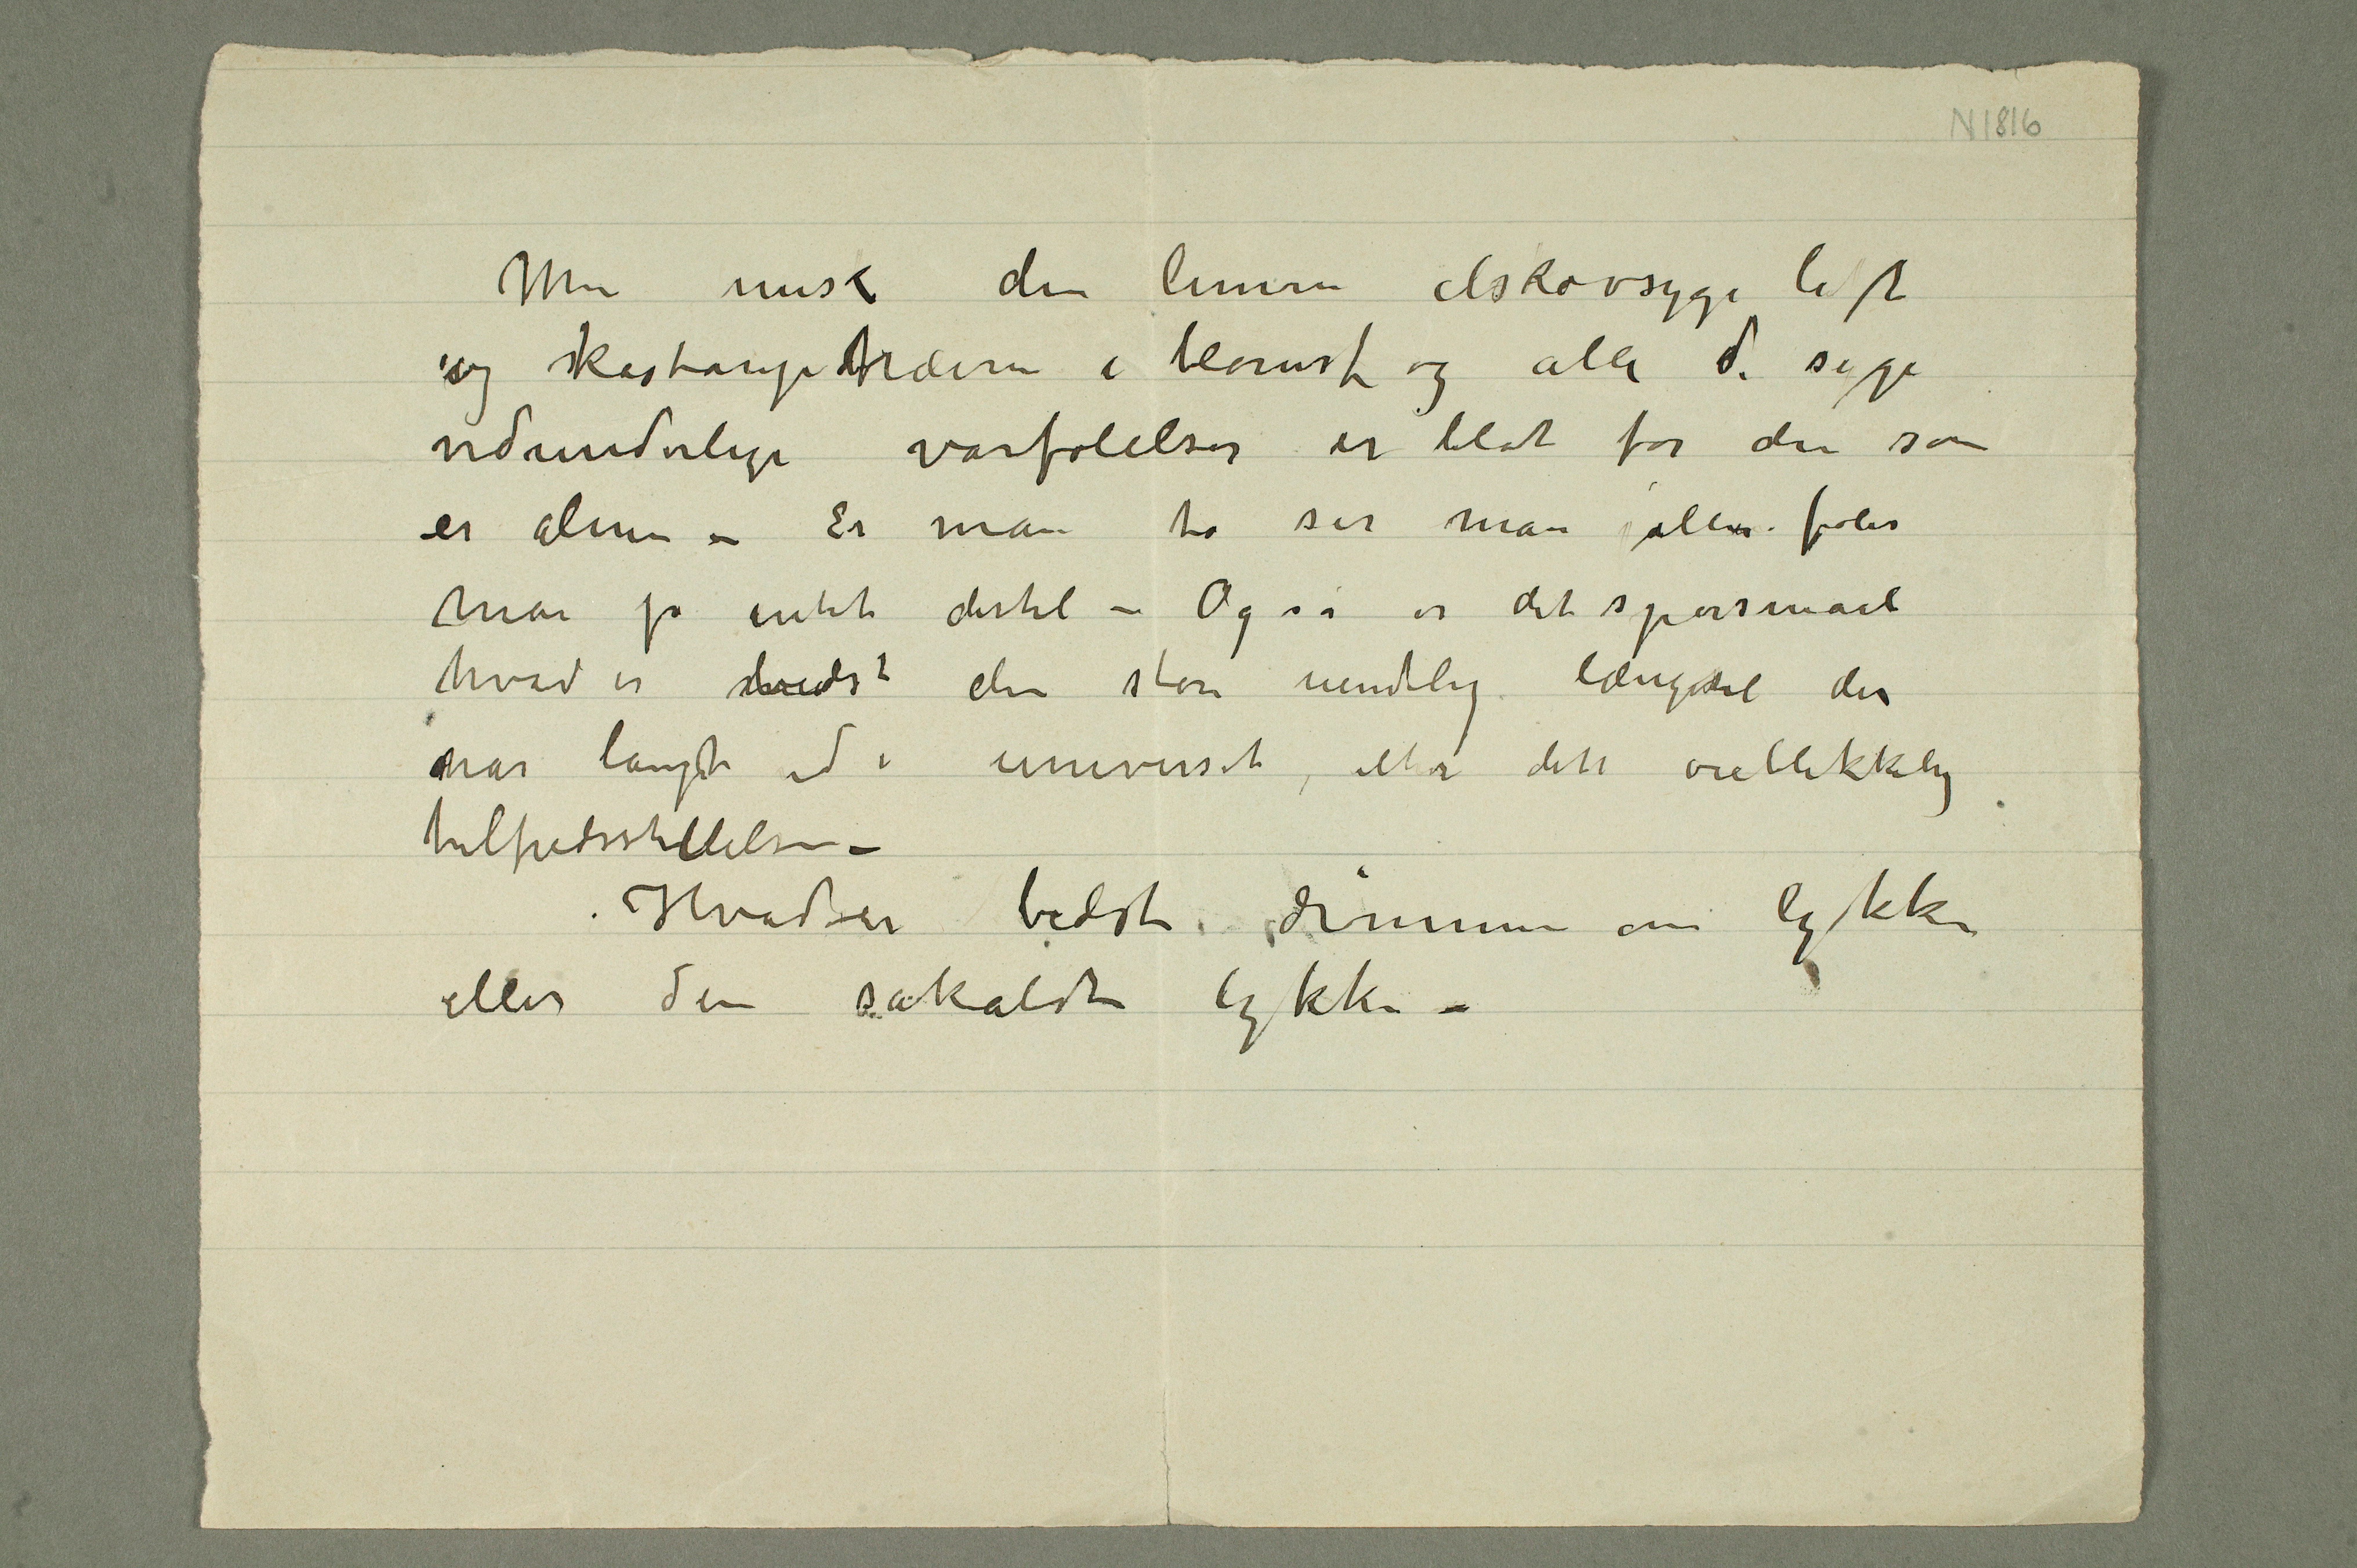 N1816
Men husk den lumre elskovsyge luft
og kastanjetræerne i blomst og alle de syge
vidunderlige vårfølelser er blot for den som
er alene – Er man to ser man eller føler
man jo intet dertil – Og så er det spørsmaal
hvad er bedst den store uendelig længsel der
når langt ud i universet, eller dette øieblikkelig
tilfredsstillelse –
Hvad er bedst drømmen om lykke
eller den såkaldte lykke –